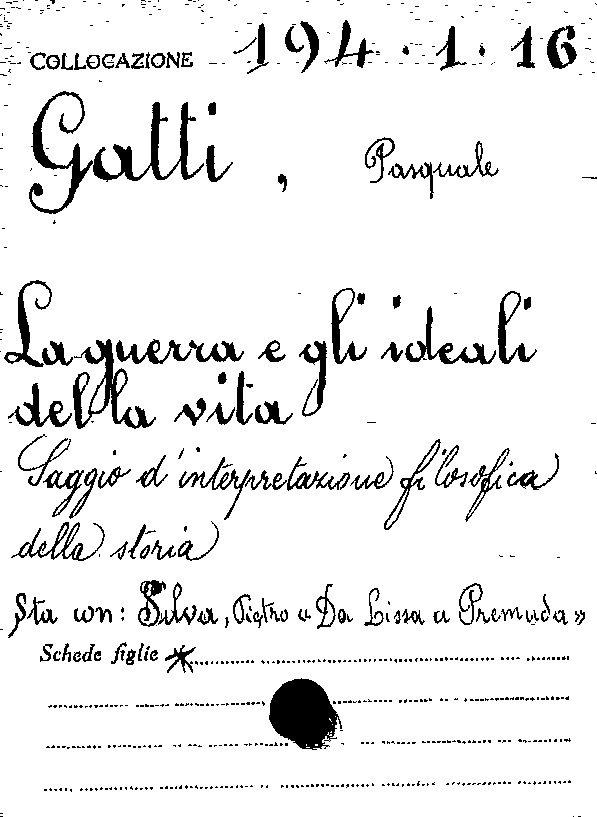 COLLOCAZIONE 194.1.16
Gatti, Pasquale
La guerra e gli ideali
della vita
Saggio d'interpretazione filosofica
della storia
Sta con: Silva, Pietro « Da Lissa a Premuda »
Schede figlie *